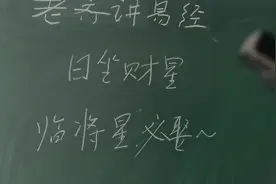 老齐讲易经
日坐财星
临将星.必娶~